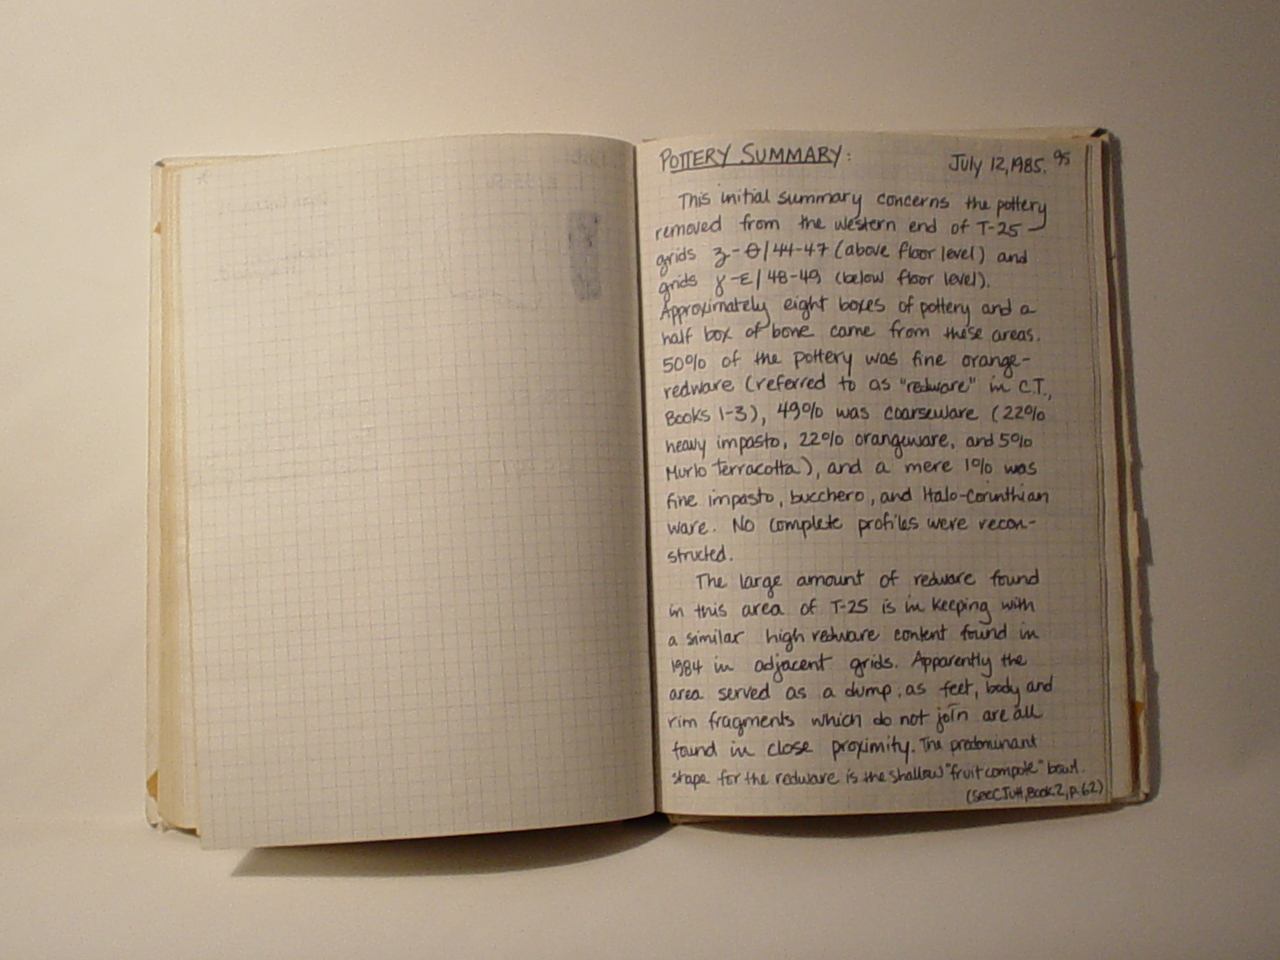 POTTERY SUMMARY: July 12, 1985. 95
This initial summary concerns the pottery
removed from the western end of T-25 —
grids z-θ/44-47 (above floor level) and
grids γ-ε/48-49 (below floor level).
Approximately eight boxes of pottery and a
half box of bone came from these areas.
50% of the pottery was fine orange-
redware (referred to as "redware" in C.T.,
Books 1-3), 49% was coarseware (22%
heavy impasto, 22% orangeware, and 5%
Murlo terracotta), and a mere 1% was
fine impasto, bucchero, and Italo-Corinthian
ware. No complete profiles were recon-
structed.
The large amount of redware found
in this area of T-25 is in keeping with
a similar high redware content found in
1984 in adjacent grids. Apparently the
area served as a dump, as feet, body and
rim fragments which do not join are all
found in close proximity. The predominant
shape for the redware is the shallow "fruit compote" bowl.
(see C.Tuft, Book 2, p. 62)